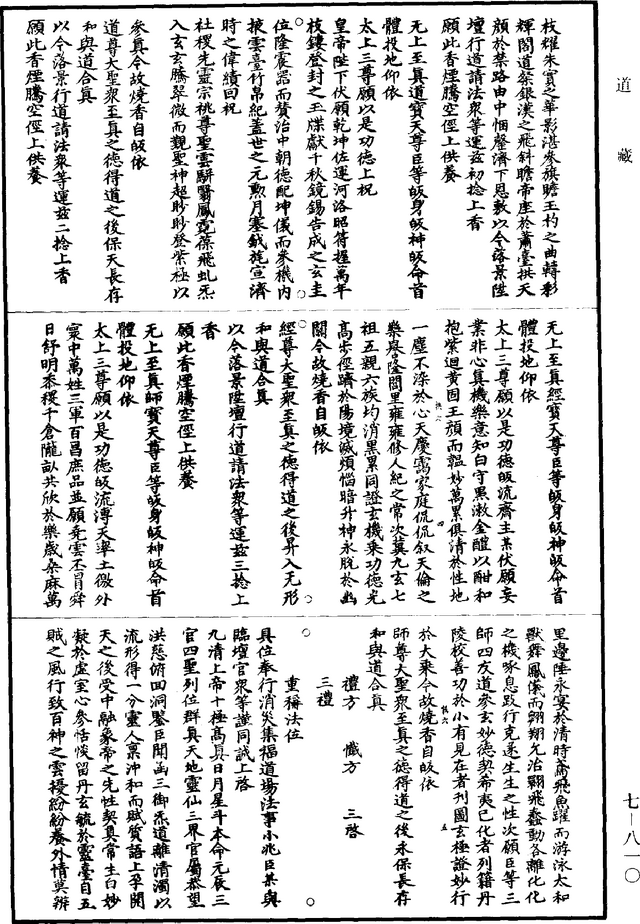 道藏
枝耀朱實之華影湛參旗瞻玉杓之曲轉彩
輝閣道粲銀漢之飛斜瞻帝座於蕭臺拱天
顔於禁路由中悃罄濟下恩敷以今落景陞
壇行道請法衆等運兹初捻上香
願此香煙騰空徑上供養
无上至真道寶天尊臣等皈身皈神皈命首
體投地仰依
太上三尊願以是功德上祝
皇帝陛下伏願乾坤佐運河洛昭符握萬年
枝鏤登封之玉牒獻千秋鏡錫告成之玄圭
位隆震器而賛治中朝德配坤儀而參機内
掖雲臺竹帛紀蓋世之元勲月塞鉞旄宣濟
時之偉績回祝
社稷先靈宗祧尊聖雲駢翳鳳霓葆飛虬炁
入玄玄騰翠微而覲聖神超眇眇登紫極以
參真今故燒香自皈依
道尊大聖衆至真之德得道之後保天長存
和與道合真
以今落景行道請法衆等運兹二捻上香
願此香煙騰空徑上供養
无上至真經寶天尊臣等皈身皈神皈命首
體投地仰依
太上三尊願以是功德皈流齋主某伏願妄
業非心真機樂意知白守黑漱金醴以酣和
抱紫迴黄固玉顔而韞妙萬累俱清於性地
一塵不染於心天慶霭家庭侃侃叙天倫之
樂恩隆閭里雍雍修人紀之常次冀九玄七
祖五親六族均消黑累同證玄機乘功德光
高步徑躋於陽境滅煩惱暗升神永脱於幽
關今故燒香自皈依
經尊大聖衆至真之德得道之後昇入无形
和與道合真
以今落景陞壇行道請法衆等運兹三捻上
香
願此香煙騰空徑上供養
无上至真師寶天尊臣等皈身皈神皈命首
體投地仰依
太上三尊願以是功德皈流溥天率土徼外
寰中萬姓三軍百昌庶品並願堯雲丕冒舜
日舒明黍稷千倉隴畝共欣於樂歲桑麻萬
里邊陲永宴於清時鳶飛魚躍而游泳太和
獸舞鳳儀而翱翔允治翾飛蠢動各離化化
之機啄息跂行克遂生生之性次願臣等三
師四友道參玄妙德契希夷已化者列籍丹
陵校善功於小有見在者刊圖玄極證妙行
於大乘今故燒香自皈依
師尊大聖衆至真之德得道之後永保長存
和與道合真
禮方 懺方 三啓
三禮
重稱法位
具位奉行消災集福道場法事小兆臣某與
臨壇官衆等謹同誠上啓
九清上帝十極高真日月星斗本命元辰三
官四聖列位群真天地靈仙三界官屬恭望
洪慈俯回洞鑒臣聞函三御炁道離清濁以
流形得一分靈人稟沖和而賦質語上孚開
天之後受中融象帝之先性契真常生白妙
凝於虚室心參恬惔留丹玄毓於靈臺自五
賊之風行致百神之雲擾紛紛養外情莫辨
七－八一〇